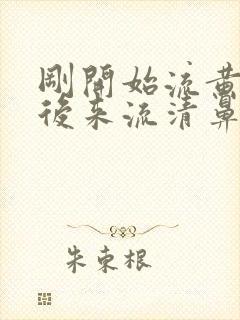 剛開始流黃
後來流清鼻
朱束根